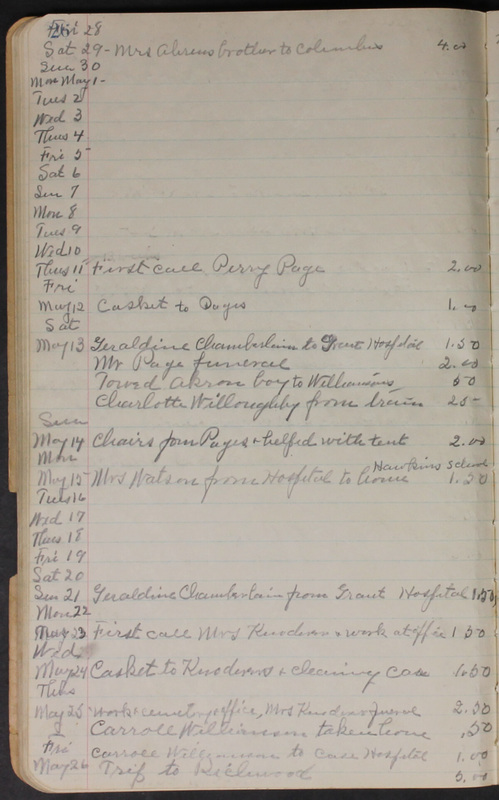 Fri 28
Sat 29 - Mrs Ahrens brother to Columbus 4.00
Sun 30
Mon May 1 -
Tues 2
Wed 3
Thus 4
Fri 5
Sat 6
Sun 7
Mon 8
Tues 9
Wed 10
Thus 11 First call Perry Page 2.00
Fri
May 12 Casket to Pages 1.00
Sat
May 13 Geraldine Chamberlain to Grant Hospital 1.50
Mr Page funeral 2.00
Towed Akron boy to Williamsons 50
Charlotte Willoughby from train 25
Sun
May 14 Chairs from Pages + helped with tent 2.00
Mon Hawkins School
May 15 Mrs Watson from Hospital to home 1.50
Tues 16
Wed 17
Thus 18
Fri 19
Sat 20
Sun 21 Geraldine Chamberlain from Grant Hospital 1.50
Mon 22
May 23 First call Mrs & work at office 1.50
Wed
May 24 Casket to + cleaning car 1.50
Thus
May 25 work office, Mrs funeral 2.50
Carroll Williamson taken home .50
Fri Carroll Williamson to Case Hospital 1.00
May 26 Trip to Richwood 5.00